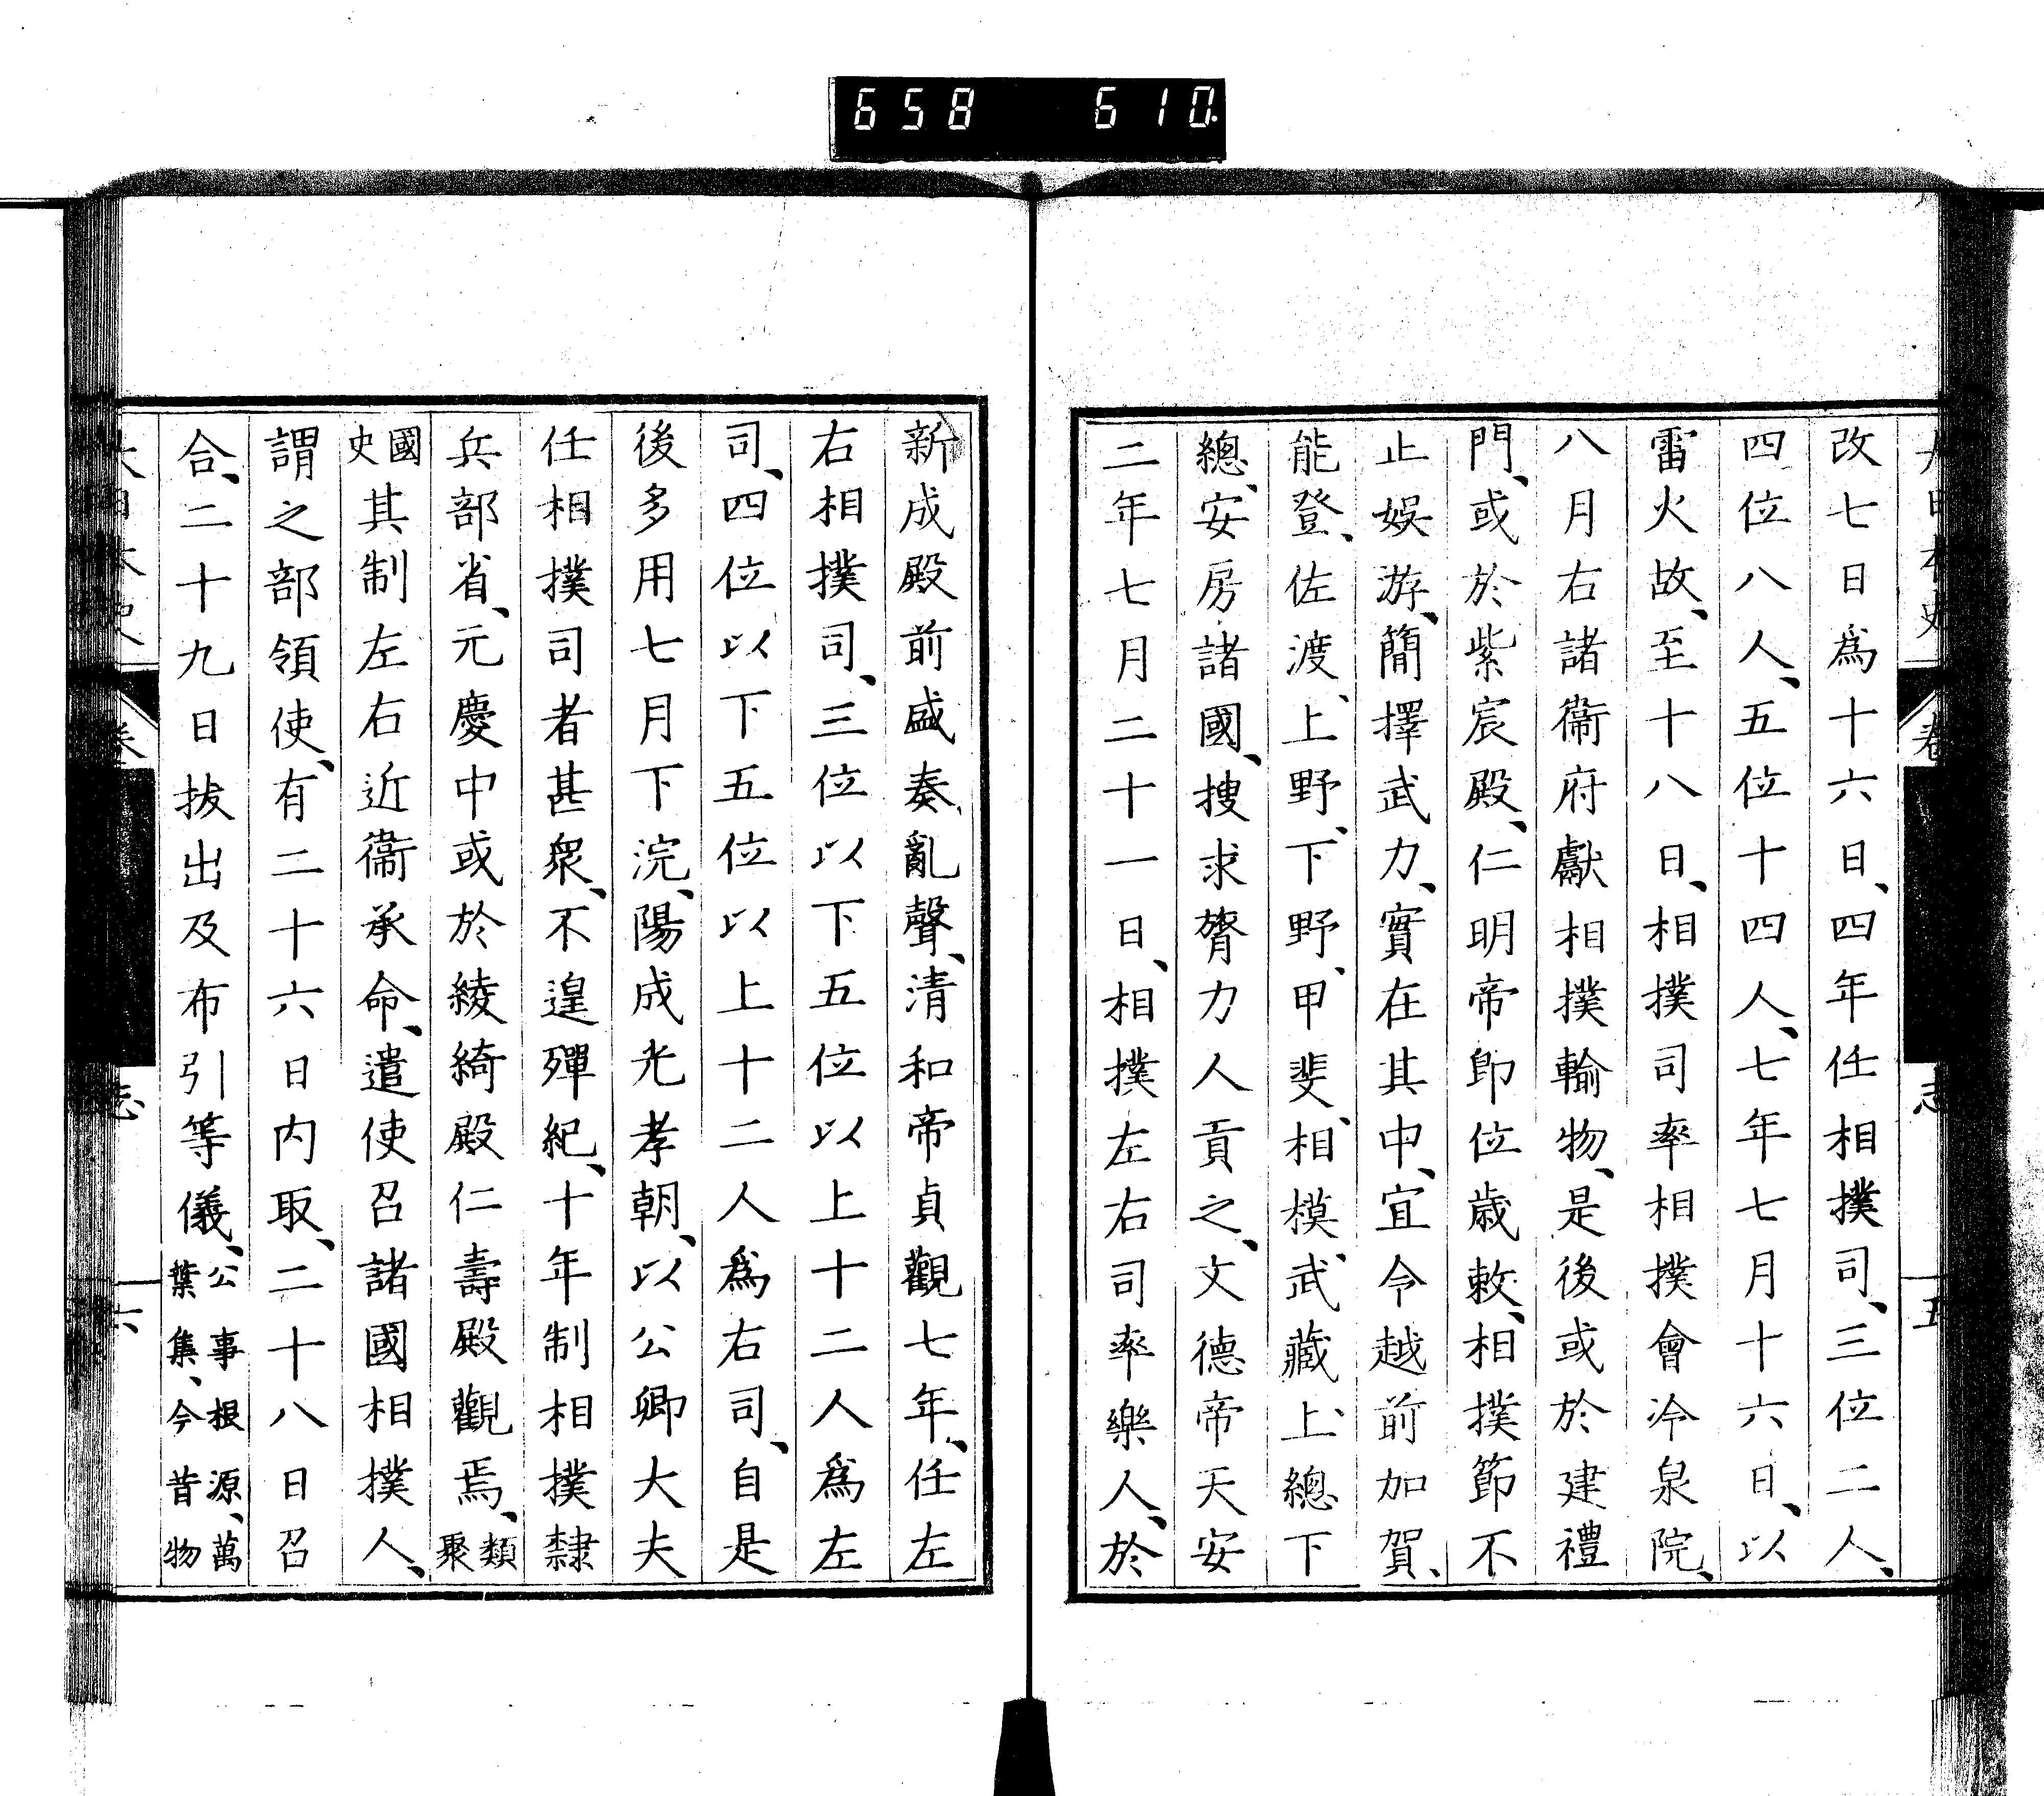 658 610
改七日爲十六日、四年任相撲司、三位二人、
四位八人、五位十四人、七年七月十六日、以
雷火故、至十八日、相撲司率相撲會冷泉院、
八月右諸衞府獻相撲輸物、是後或於建禮
門、或於紫宸殿、仁明帝卽位歲敕、相撲節不
止娛游、簡擇武力、實在其中、宜令越前加賀、
能登、佐渡、上野、下野、甲斐、相模、武藏、上總、下
總、安房諸國、搜求膂力人貢之、文德帝天安
二年七月二十一日、相撲左右司率樂人、於
新成殿前盛奏亂聲、清和帝貞觀七年、任左
右相撲司、三位以下五位以上十二人爲左
司、四位以下五位以上十二人爲右司、自是
後多用七月下浣、陽成光孝朝、以公卿大夫
任相撲司者甚衆、不遑殫紀、十年制相撲隸
兵部省、元慶中或於綾綺殿仁壽殿觀焉、類聚
國史其制左右近衞承命、遣使召諸國相撲人、
謂之部領使、有二十六日內取、二十八日召
合、二十九日拔出及布引等儀、公事根源、萬葉集、今昔物